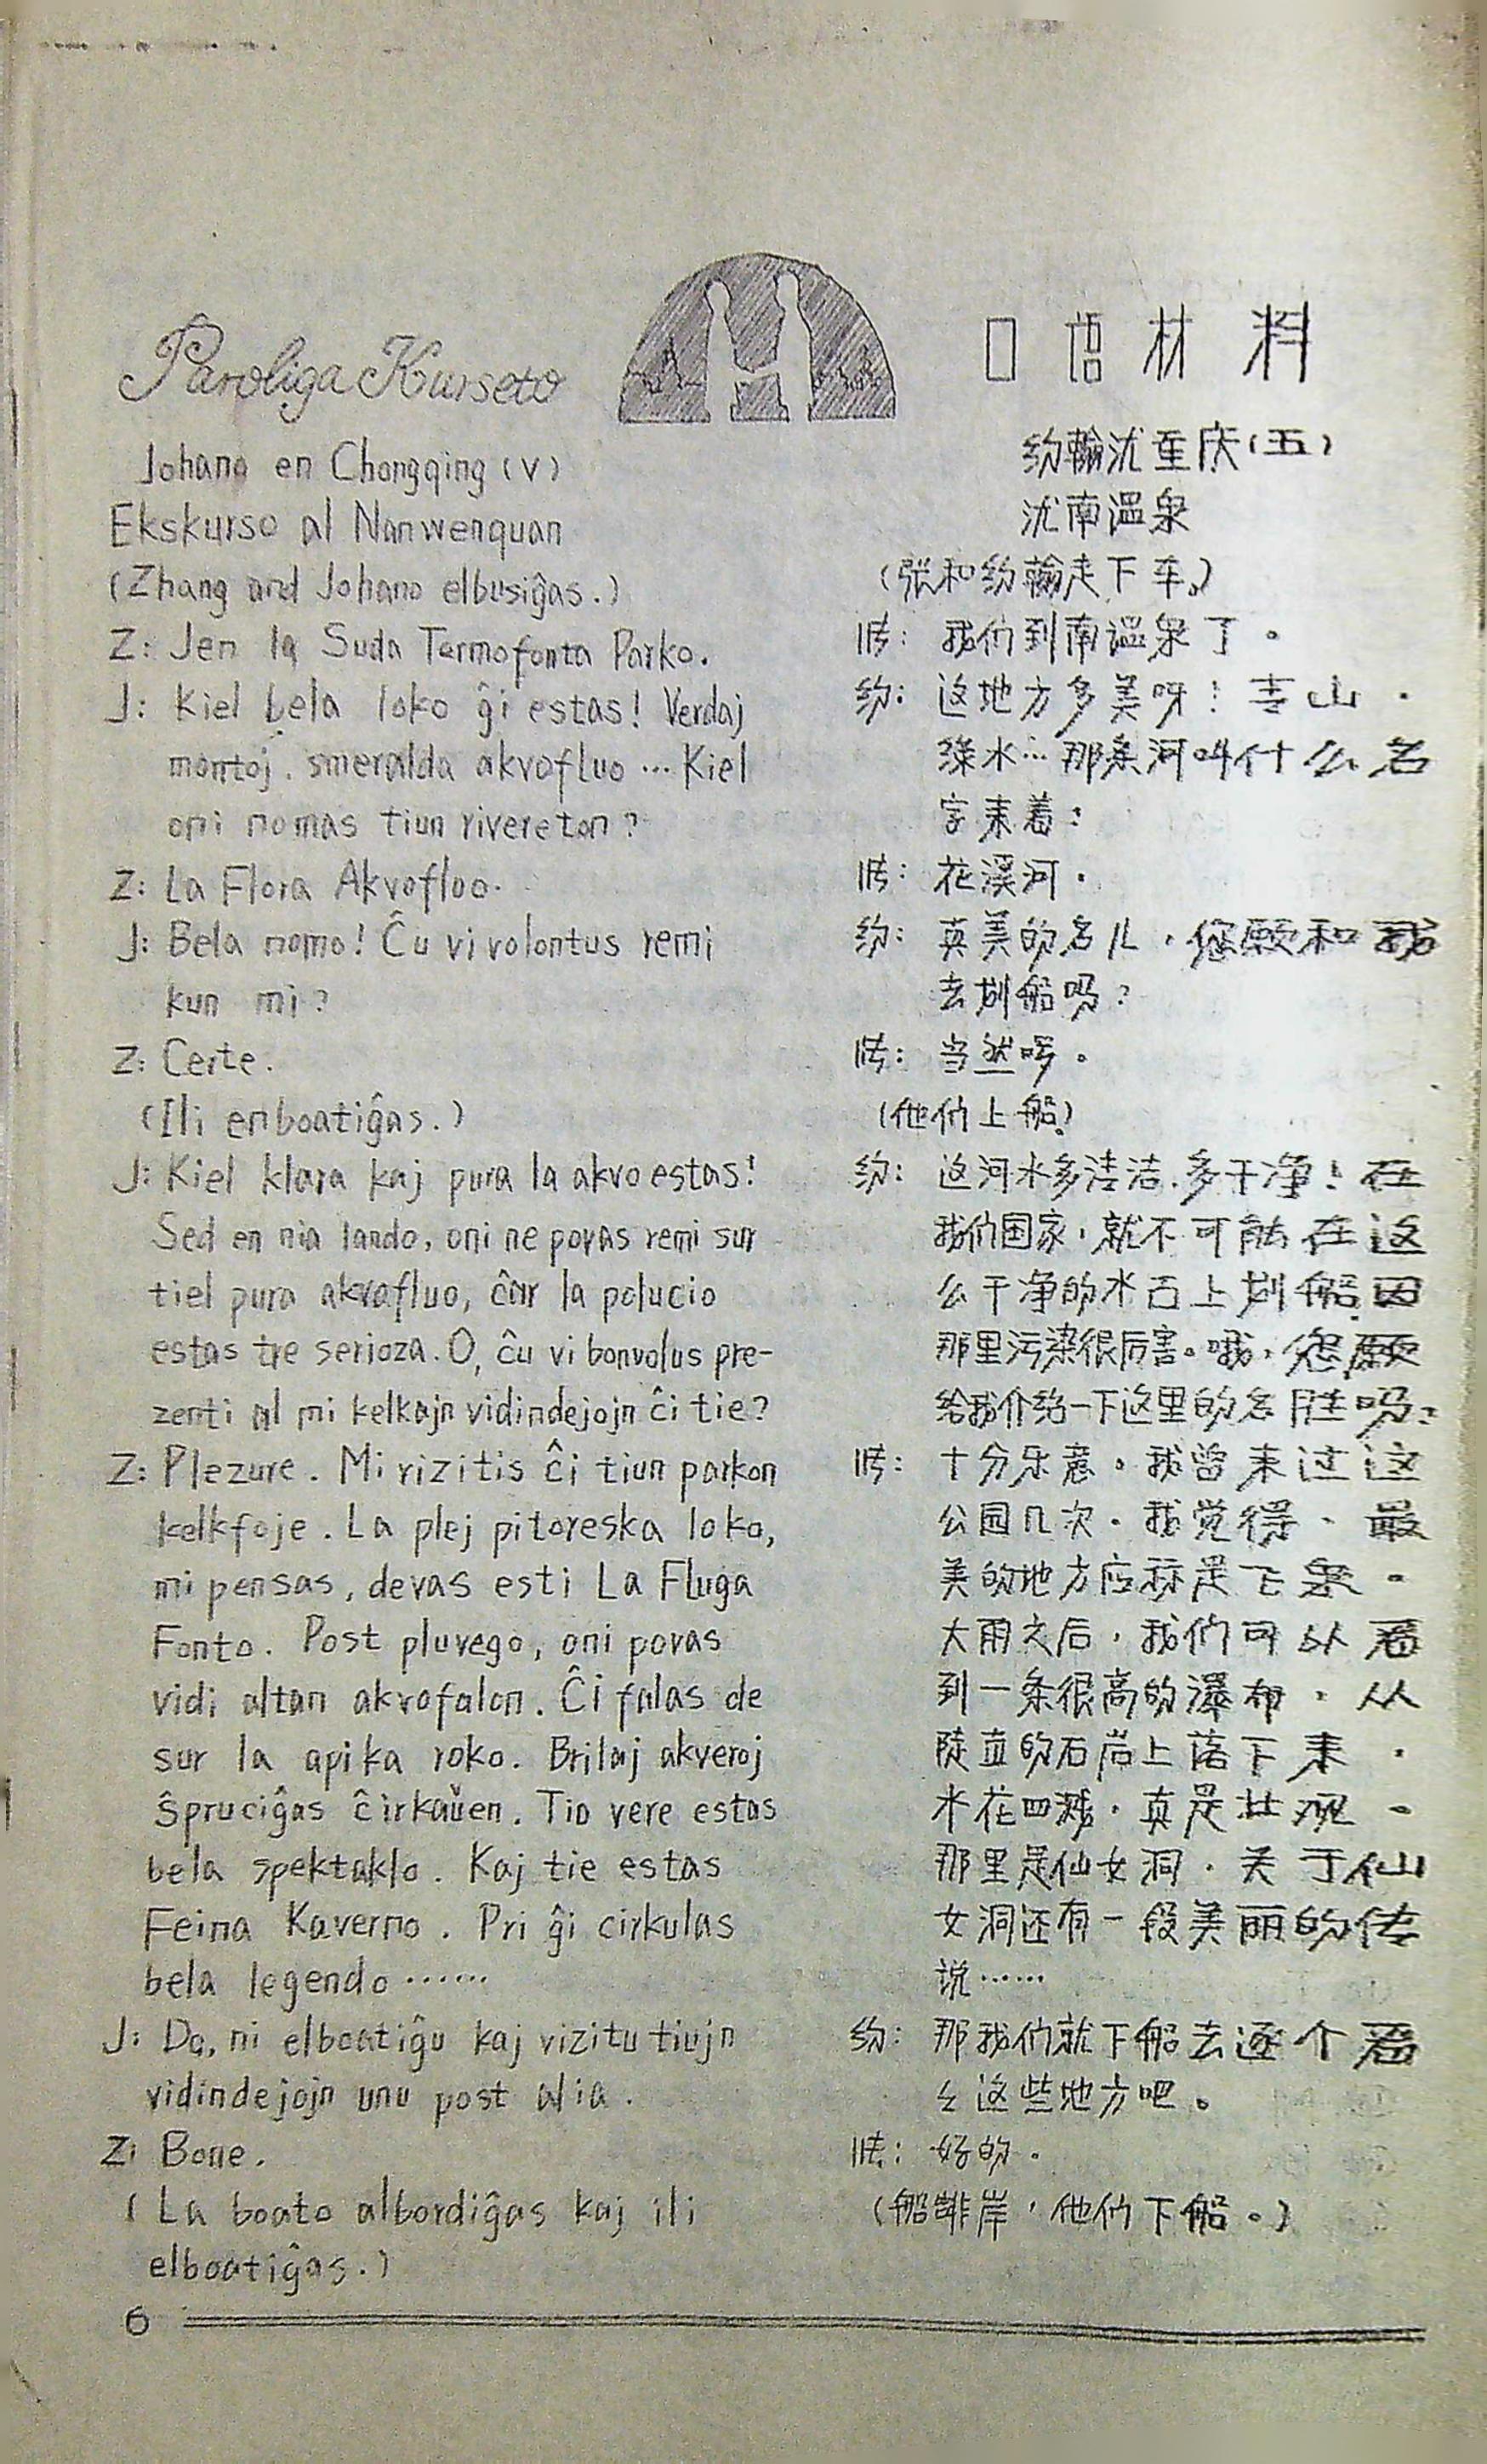 Paroliga Kurseto
Johano en Chongqing (V)
Ekskurso al Nanwenquan
(Zhang and Johano elbusiĝas.)
Z: Jen la Suda Termofonta Parko.
J: Kiel bela loko ĝi estas! Verdaj
montoj, smeralda akvofluo ... Kiel
oni nomas tiun rivereton?
Z: La Flora Akvofluo.
J: Bela nomo! Ĉu vi volontus remi
kun mi?
Z: Certe.
(Ili enboatiĝas.)
J: Kiel klara kaj pura la akvo estas!
Sed en nia lando, oni ne povas remi sur
tiel pura akvofluo, ĉar la polucio
estas tre serioza. O, ĉu vi bonvolus pre-
zenti al mi kelkajn vidindejojn ĉi tie?
Z: Plezure. Mi vizitis ĉi tiun parkon
kelkfoje. La plej pitoreska loko,
mi pensas, devas esti La Fluga
Fonto. Post pluvego, oni povas
vidi altan akvofalon. Ĉi falas de
sur la apika roko. Brilaj akveroj
ŝpruciĝas ĉirkaŭen. Tio vere estas
bela spektaklo. Kaj tie estas
Feina Kaverno. Pri ĝi cirkulas
bela legendo ......
J: Do, ni elboatiĝu kaj vizitu tiujn
vidindejojn unu post alia.
Z: Bone.
(La boato albordiĝas kaj ili
elboatiĝas.)
6
口语材料
约翰游重庆(五)
游南温泉
(张和约翰走下车。)
张: 我们到南温泉了。
约: 这地方多美呀!青山,
绿水…那条河叫什么名
字来着?
张: 花溪河。
约: 真美的名儿,您愿和我
去划船吗?
张: 当然啰。
(他们上船)
约: 这河水多清洁,多干净!在
我们国家,就不可能在这
么干净的水面上划船,因
那里污染很厉害。哦,您愿
给我介绍一下这里的名胜吗?
张: 十分乐意。我曾来过这
公园几次。我觉得,最
美的地方应称是飞泉。
大雨之后,我们可以看
到一条很高的瀑布,从
陡直的石岩上落下来,
水花四溅,真是壮观。
那里是仙女洞,关于仙
女洞还有一段美丽的传
说……
约: 那我们就下船去逐个看
看这些地方吧。
张: 好的。
(船靠岸,他们下船。)